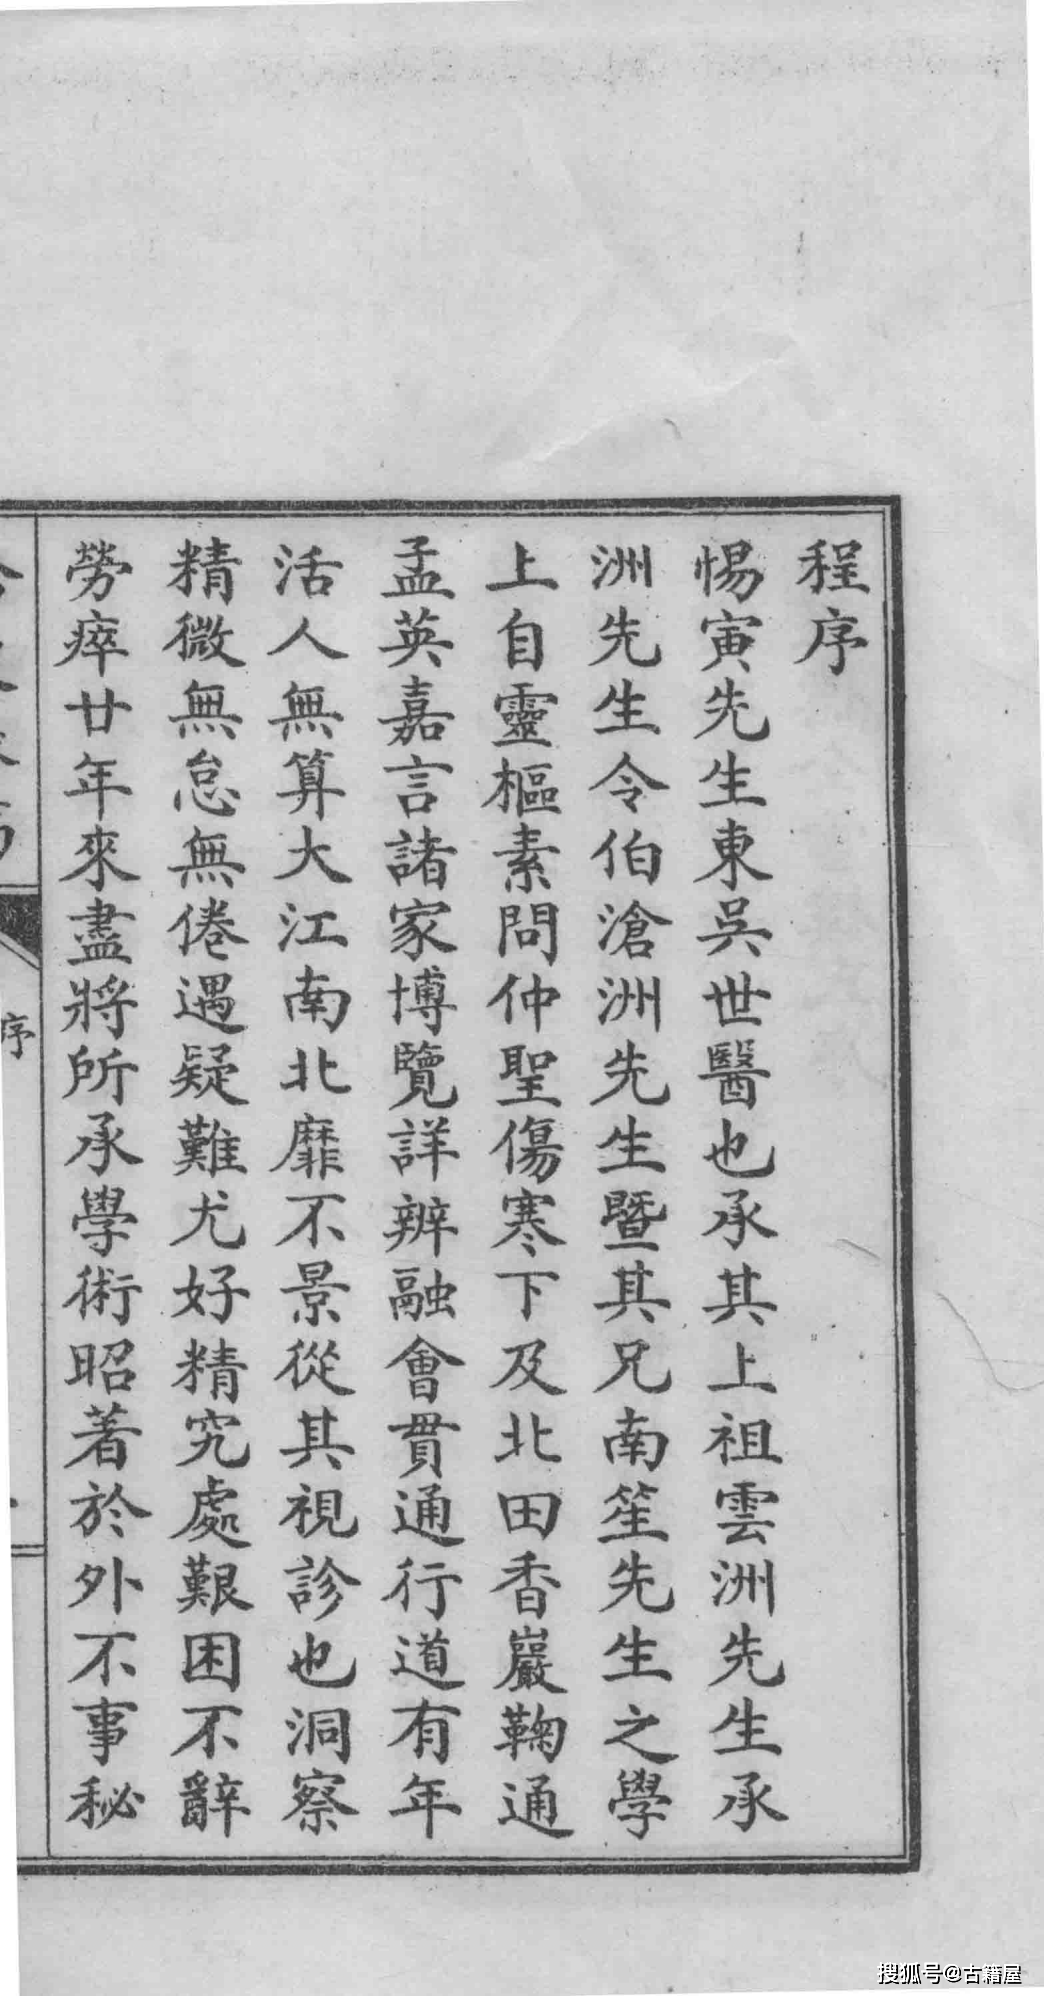 程序
惕寅先生東吳世醫也承其上祖雲洲先生承
洲先生令伯滄洲先生暨其兄南笙先生之學
上自靈樞素問仲聖傷寒下及北田香巖鞠通
孟英嘉言諸家博覽詳辨融會貫通行道有年
活人無算大江南北靡不景從其視診也洞察
精微無怠無倦遇疑難尤好精究處艱困不辭
勞瘁廿年來盡將所承學術昭著於外不事秘
序
搜狐号@古籍屋